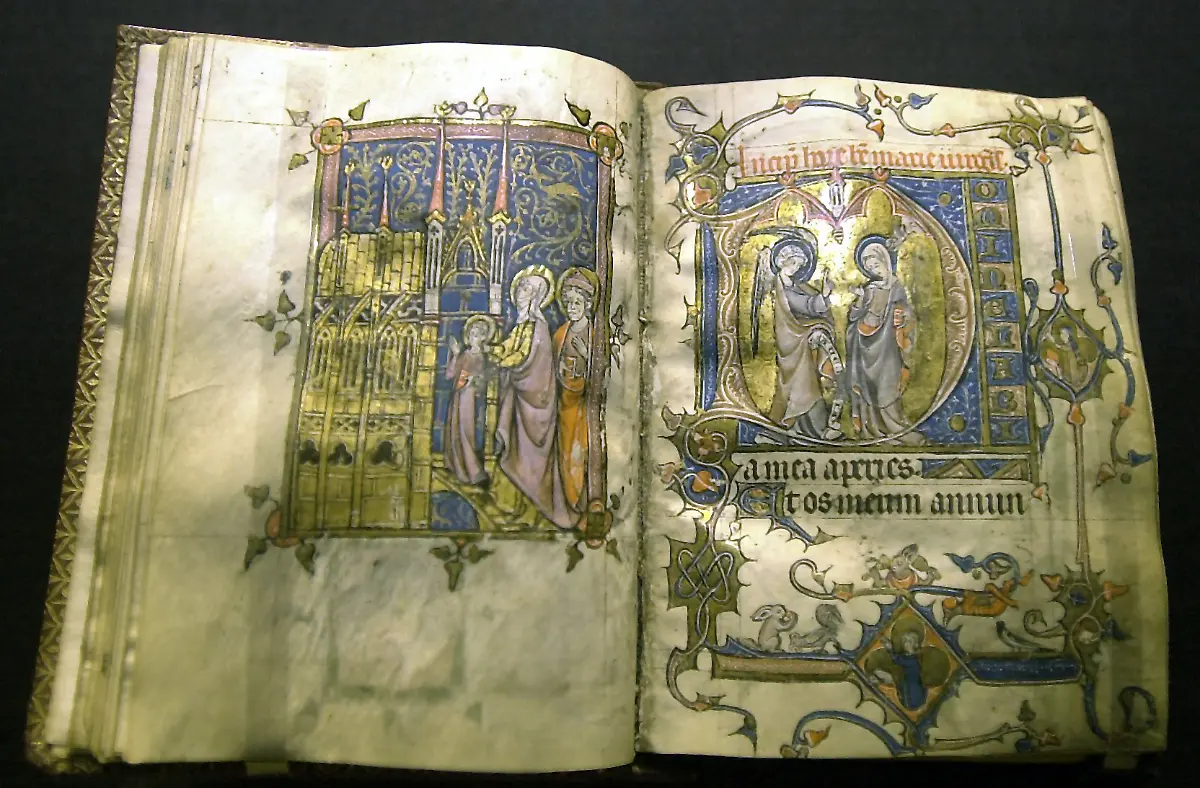 hore be marie
D
omine labi
a mea aperies.
Et os meum annun